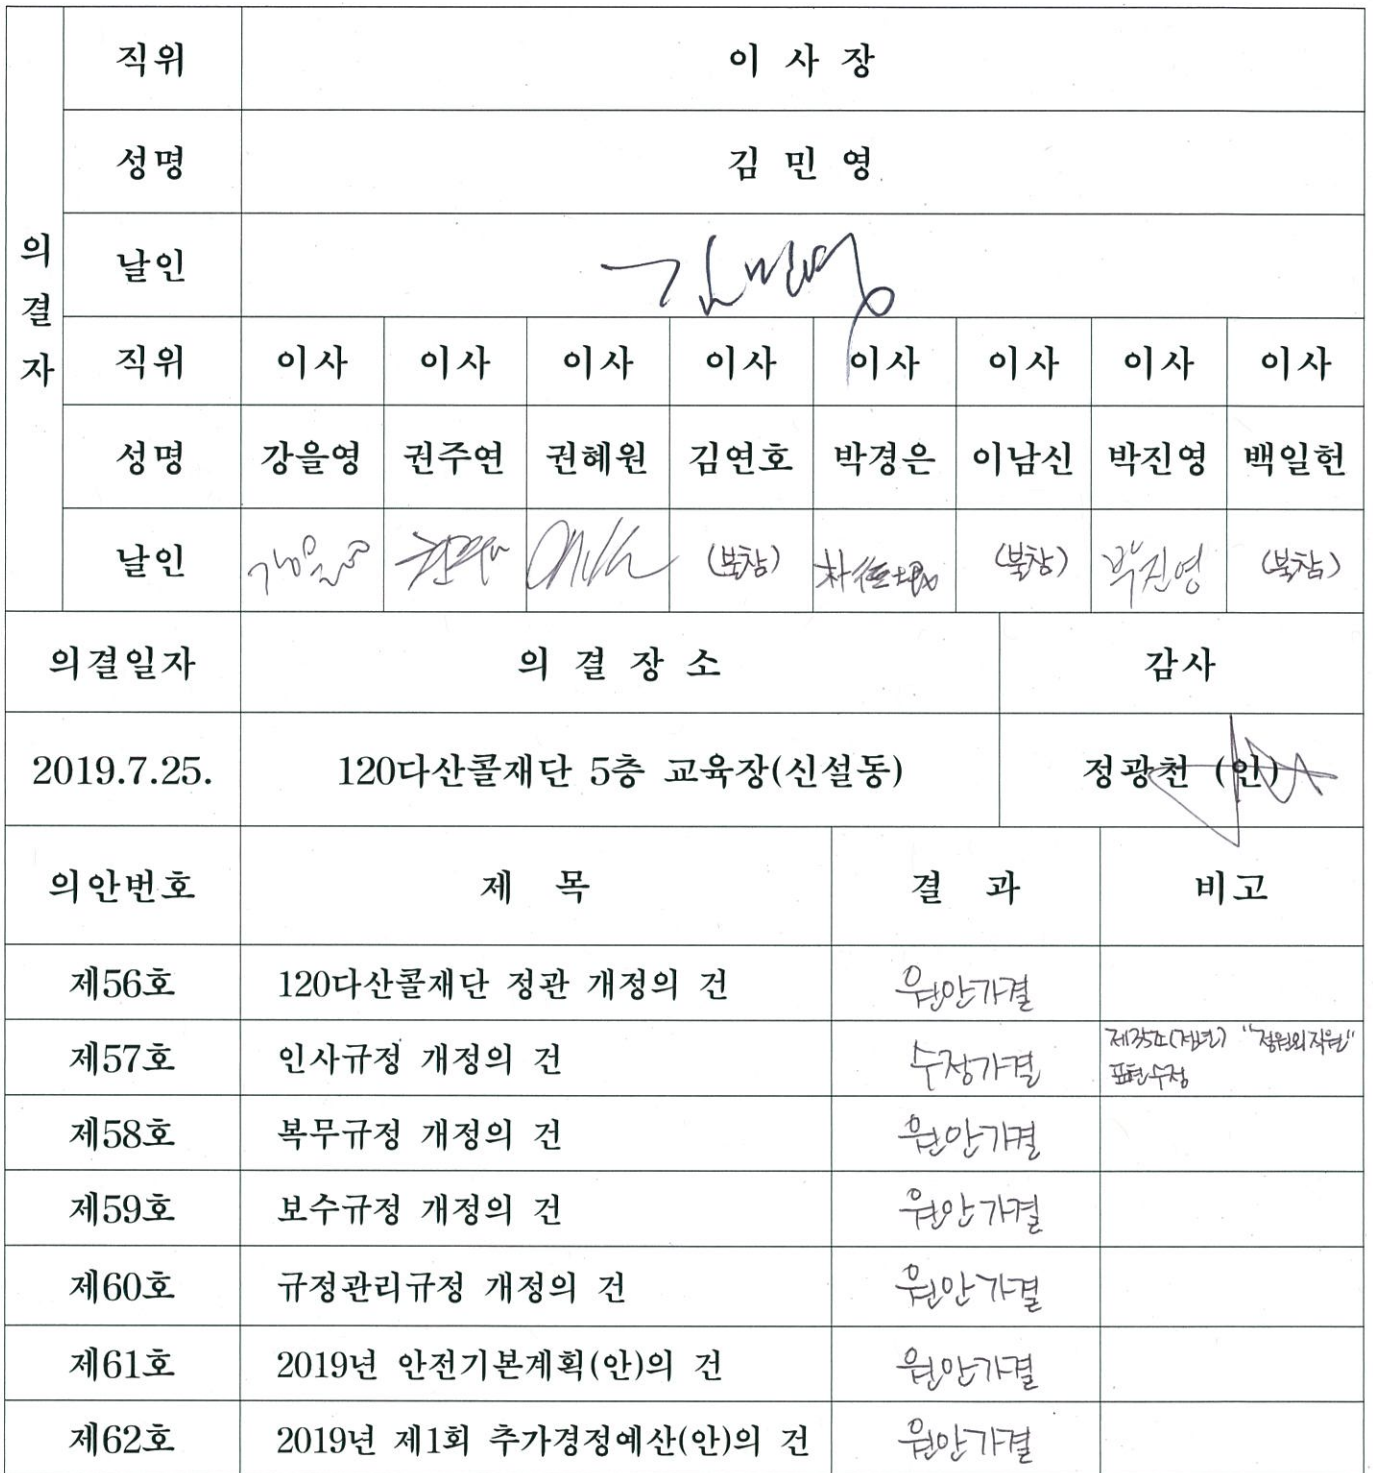 의결자
직위 이 사 장
성명 김 민 영
날인 김민영
직위 이사 이사 이사 이사 이사 이사 이사 이사
성명 강을영 권주연 권혜원 김연호 박경은 이남신 박진영 백일헌
날인 강을영 (불참) (불참) 박진영 (불참)
의결일자 의 결 장 소 감사
2019.7.25. 120다산콜재단 5층 교육장(신설동) 정광천 (인)
의안번호 제 목 결 과 비고
제56호 120다산콜재단 정관 개정의 건 원안가결
제57호 인사규정 개정의 건 수정가결 제35조(정년) "정원외직원"
표현수정
제58호 복무규정 개정의 건 원안가결
제59호 보수규정 개정의 건 원안가결
제60호 규정관리규정 개정의 건 원안가결
제61호 2019년 안전기본계획(안)의 건 원안가결
제62호 2019년 제1회 추가경정예산(안)의 건 원안가결